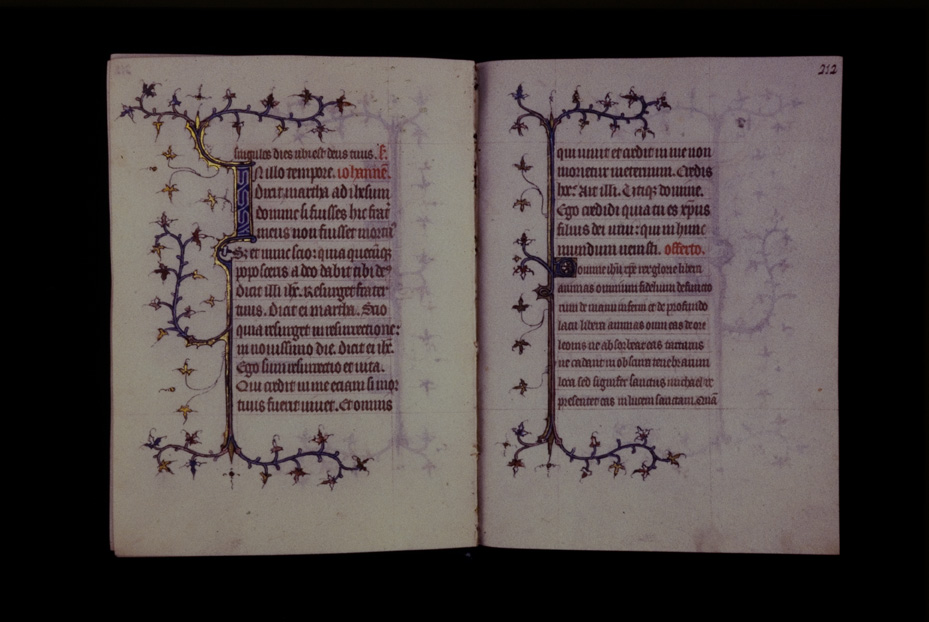 singulos dies ubi est deus tuus. S.
In illo tempore. iohannē.
Dixit martha ad ihesum
domine si fuisses hic frat̉
meus non fuisset mortuꝰ
Sz et nunc scio: quia quecūqꝫ
poposceris a deo dabit tibi deꝰ
Dicit illi ihc̄. Resurget frater
tuus. Dicit ei martha. Scio
quia resurget in resurrectione:
in nouissimo die. Dicit ei ihc̄.
Ego sum resurrectio et uita.
Qui credit in me etiam si mor
tuus fuerit uiuet. Et omnis
212
qui uiuit et credit in me non
morietur in eternum. Credis
hoc: Ait illi. Utiqꝫ domine.
Ego credidi quia tu es xp̄us
filius dei uiui: qui in hunc
mundum uenisti. offerto.
Domine ihū xp̄e rex glorie libera
animas omnium fidelium defuncto
rum de manu inferni et de profundo
lacu libera animas omni eas de ore
leonis ne absorbeat eas tartarus
ne cadant in obscura tenebrarum
loca sed signifer sanctus michael re
presentet eas in lucem sanctam. Quā